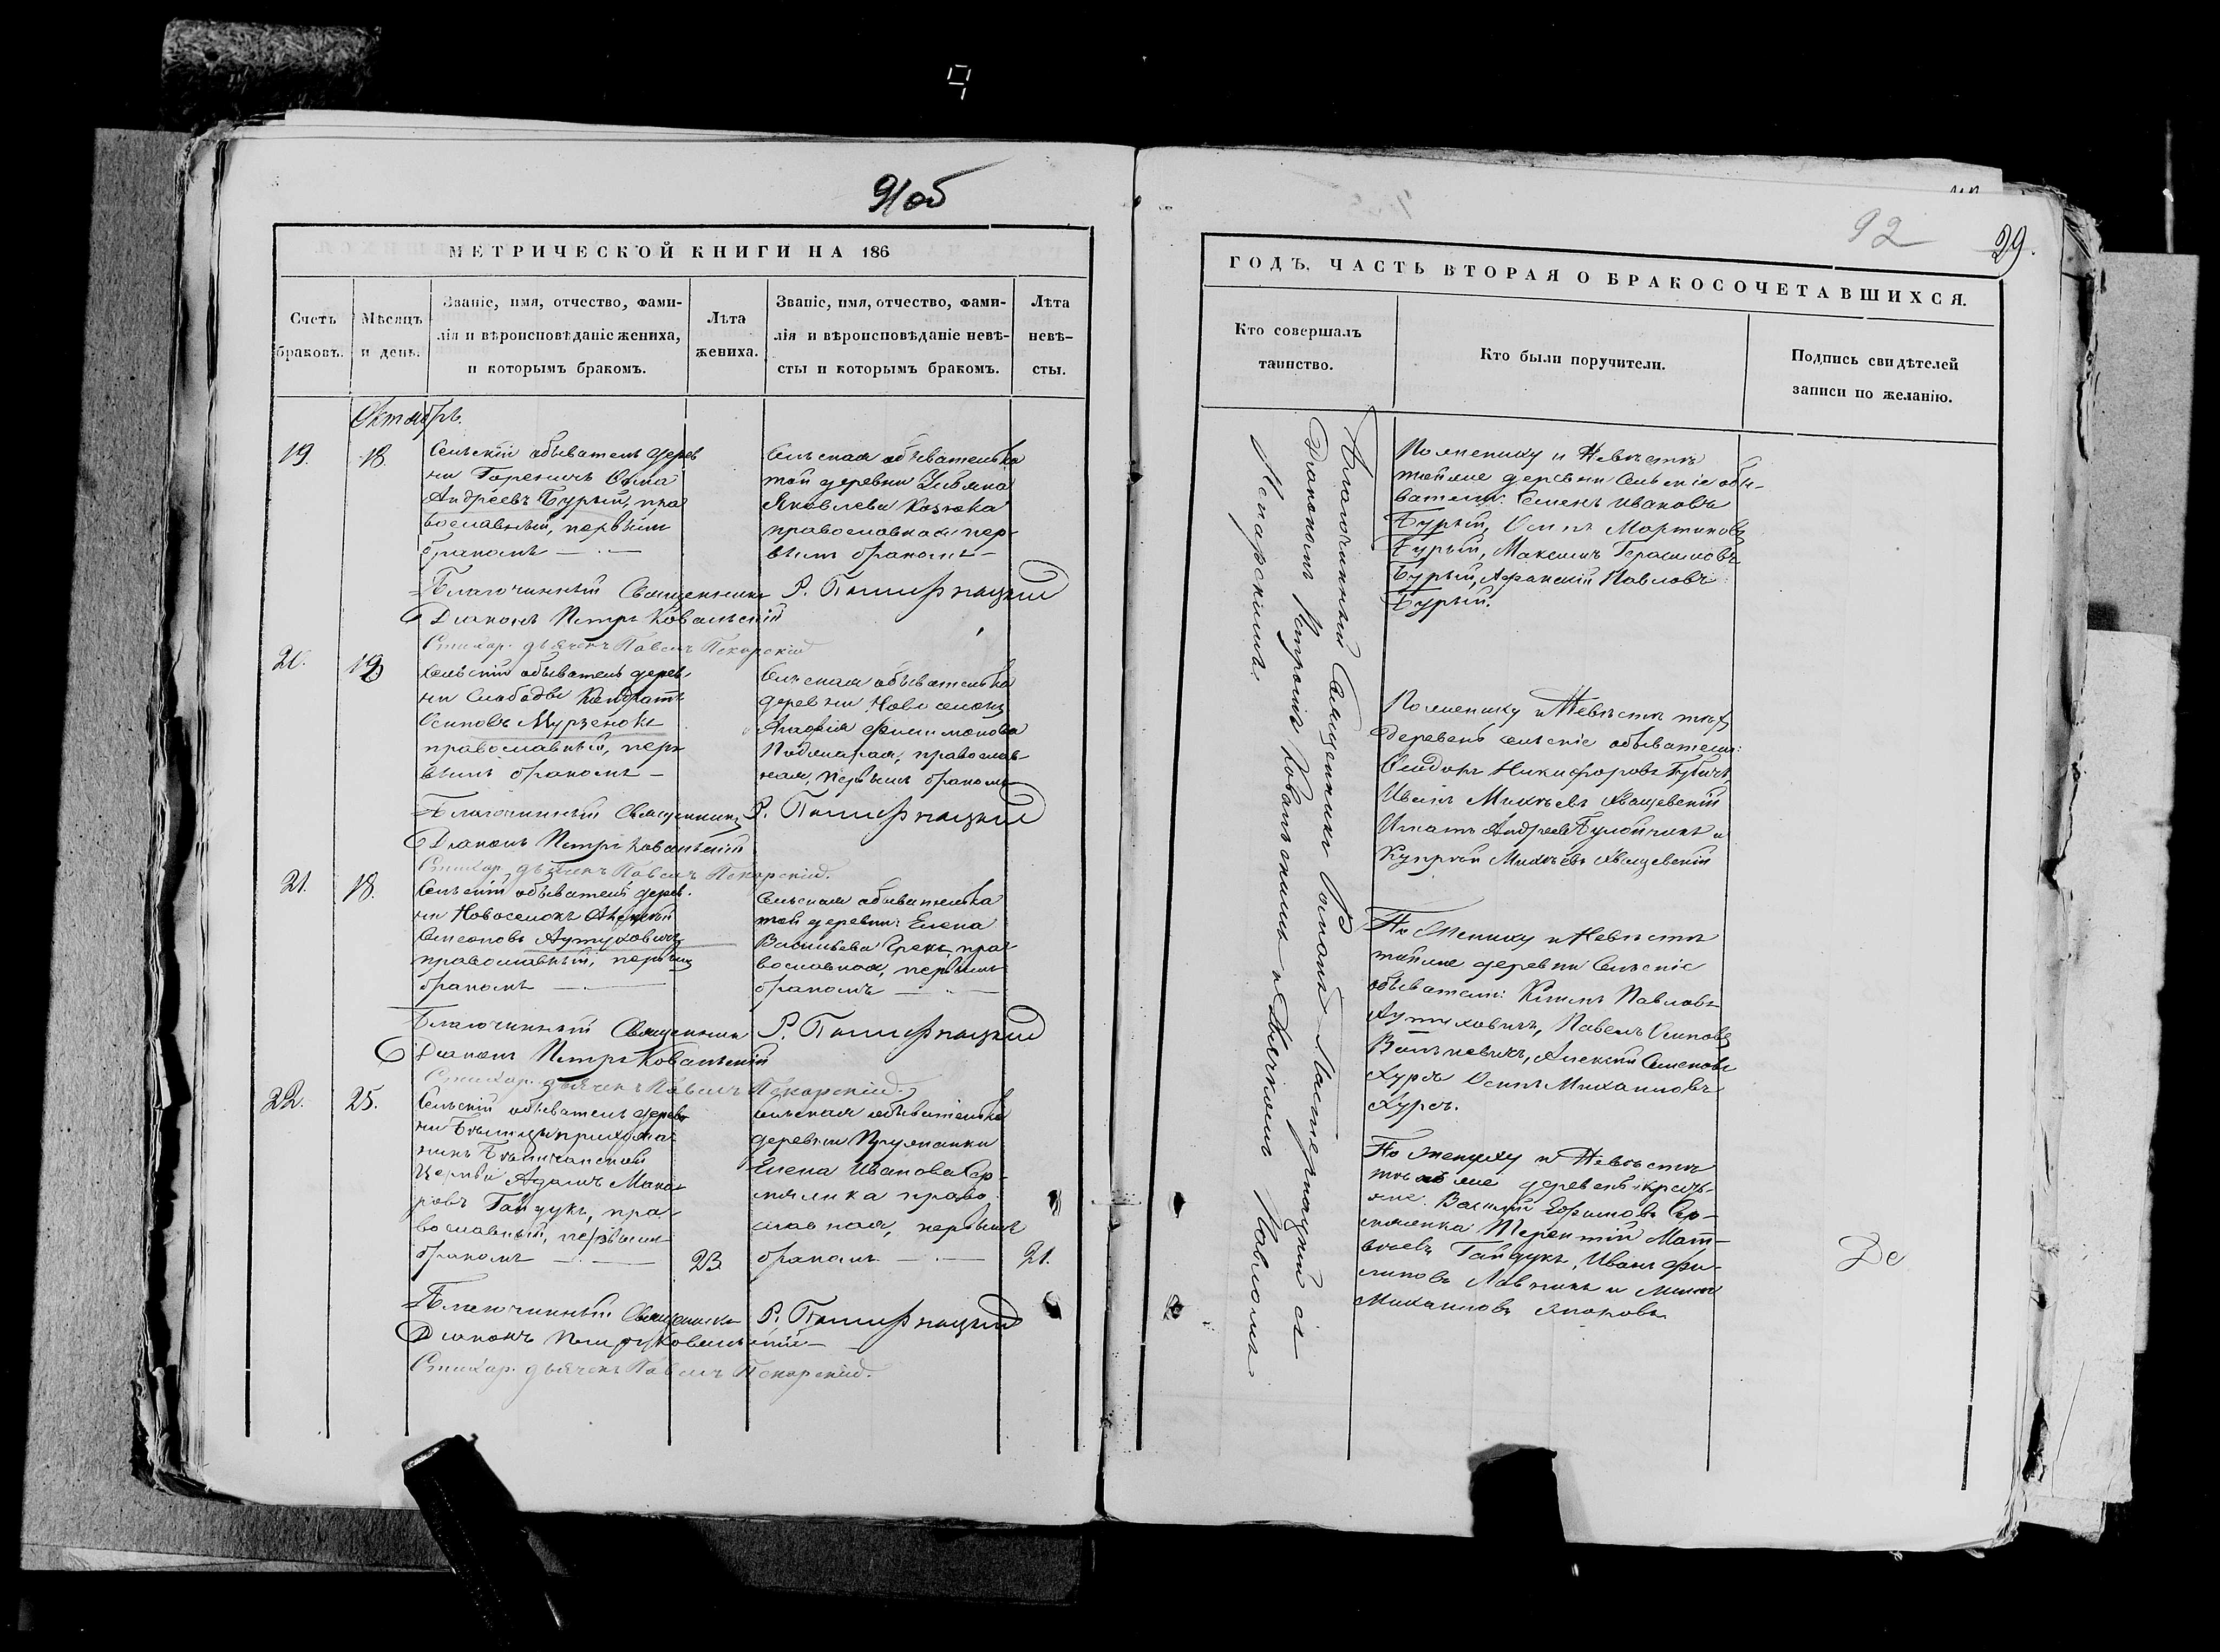 91об
МЕТРИЧЕСКОЙ КНИГИ НА 186
Счетъ браковъ.
Мѣсяцъ и день.
Званіе, имя, отчество, фами-
лія и вѣроисповѣданіе жениха,
и которымъ бракомъ.
Лѣта
жениха.
Званіе, имя, отчество, фами-
лія и вѣроисповѣданіе невѣ-
сты и которымъ бракомъ.
Лѣта
невѣ-
сты.
Октябрь.
19.
18.
Сельскій обыватель дерев
ни Гореничъ Ѳома
Андреевъ Бурый, пра
вославный, первымъ
бракомъ
Сельская обывателька
той деревни Ульяна
Яковлева Козюка
православная пер-
вымъ бракомъ
Благочинный Священникъ Р.
Діаконъ Петръ Ковальскій
Стихар. дьячекъ Павелъ Пекарскій
20.
19
Сельскій обыватель дерев-
ни Слободы Кондратъ
Осиповъ Мурзенокъ
православный, пер
вымъ бракомъ
Сельская обывателька
деревни Новоселокъ
Агафія Филимонова
православ-
ная, первымъ бракомъ
Благочинный Священникъ Р.
Діаконъ Петръ Ковальскій
Стихар. дьячекъ Павелъ Пекарскій.
21.
18.
Сельскій обыватель дерев-
ни Новоселокъ Алексѣй
Семеновъ Аутуховичъ
православный, первымъ
бракомъ
Сельская обывателька
той деревни Елена
Васильева Грекъ, пра
вославная, первымъ
бракомъ
Благочинный Священникъ Р.
Діаконъ Петръ Ковальскій
Стихар. дьячекъ Павелъ Пекарскій.
22.
25.
Сельскій обыватель дерев
ни прихожа
нинъ
церкви Адамъ Мака
ровъ Гайдукъ, пра
вославный, первымъ
бракомъ
23
Сельская обывателька
деревни
Елена Иванова Сер-
православная, первымъ
бракомъ
21.
Благочинный Священникъ Р.
Діаконъ Петръ Ковальскій
Стихар. дьячекъ Павелъ Пекарскій.
92
29.
ГОДЪ, ЧАСТЬ ВТОРАЯ О БРАКОСОЧЕТАВШИХСЯ.
Кто совершалъ
таинство.
Кто были поручители.
Подпись свидѣтелей
записи по желанію.
Благочинный Священникъ Романъ съ
Діакономъ Петромъ Ковальскимъ и Дьячкомъ Павломъ
Пекарскимъ.
По жениху и Невѣстѣ
тойже деревни Сельскіе обы-
ватели: Семенъ Ивановъ
Бурый, Осипъ Мартиновъ
Бурый, Максимъ Герасимовъ
Бурый, Афанасій Павловъ
Бурый.
По жениху и Невѣстѣ тѣхъ
деревень сельскіе обыватели:
Никифоровъ
Иванъ Михѣевъ Квацевскій
Игнатъ Андреевъ и
Купрѣй Михѣевъ Квацевскій
По Жениху и Невѣстѣ
тойже деревни Сельскіе
обыватели: Павловъ
Аутуховичъ, Павелъ Осиповъ
Алексѣй Семеновъ
Осипъ Михаиловъ
По Жениху и Невѣстѣ
деревень кресть-
яне: Василій Ефимовъ Сер-
Терентій Мат-
вѣевъ Гайдукъ, Иванъ Фи-
липовъ и
Михаиловъ